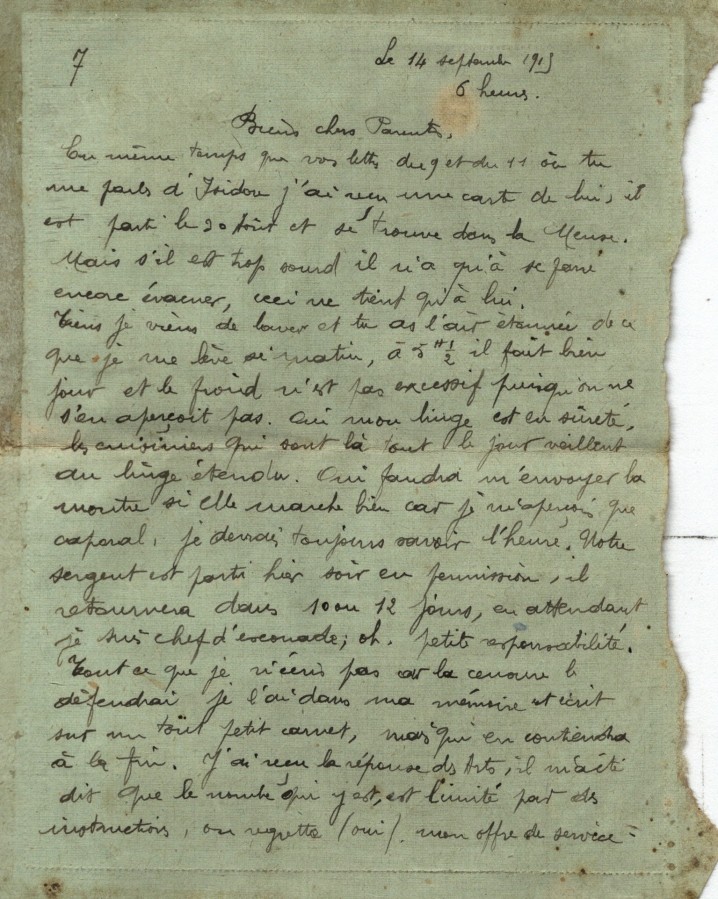 7
Le 14 septembre 1915
6 heures.
Biens chers Parents,
En même temps que vos lettres du 9 et du 11 où tu
me parles d'Isidore j'ai reçu une carte de lui, il
est parti le 20 Août et se trouve dans la Meuse.
Mais s'il est trop sourd il n'a qu'à se faire
encore évacuer, ceci ne tient qu'à lui.
Tiens je viens de laver et tu as l'air étonnée de ce
que je me lève si matin, à 5 H 1/2 il fait bien
jour et le froid n'est pas excessif puisqu'on ne
s'en aperçoit pas. Oui mon linge est en sûreté,
les cuisiniers qui sont là tout le jour veillent
au linge étendu. Oui faudra m'envoyer la
montre si elle marche bien car je m'aperçois que
caporal, je devrais toujours savoir l'heure. Notre
sergent est parti hier soir en permission, il
retournera dans 10 ou 12 jours, en attendant
je suis chef d'escouade; oh. petite responsabilité.
Tout ce que je n'écris pas car la censure le
défendrai je l'ai dans ma mémoire et écrit
sur un tout petit carnet, mais qui en contiendra
à la fin. J'ai reçu la réponse des Arts, il m'a été
dit que le nombre qui y est, est limité par des
instructions, on regrette (oui). mon offre de service =